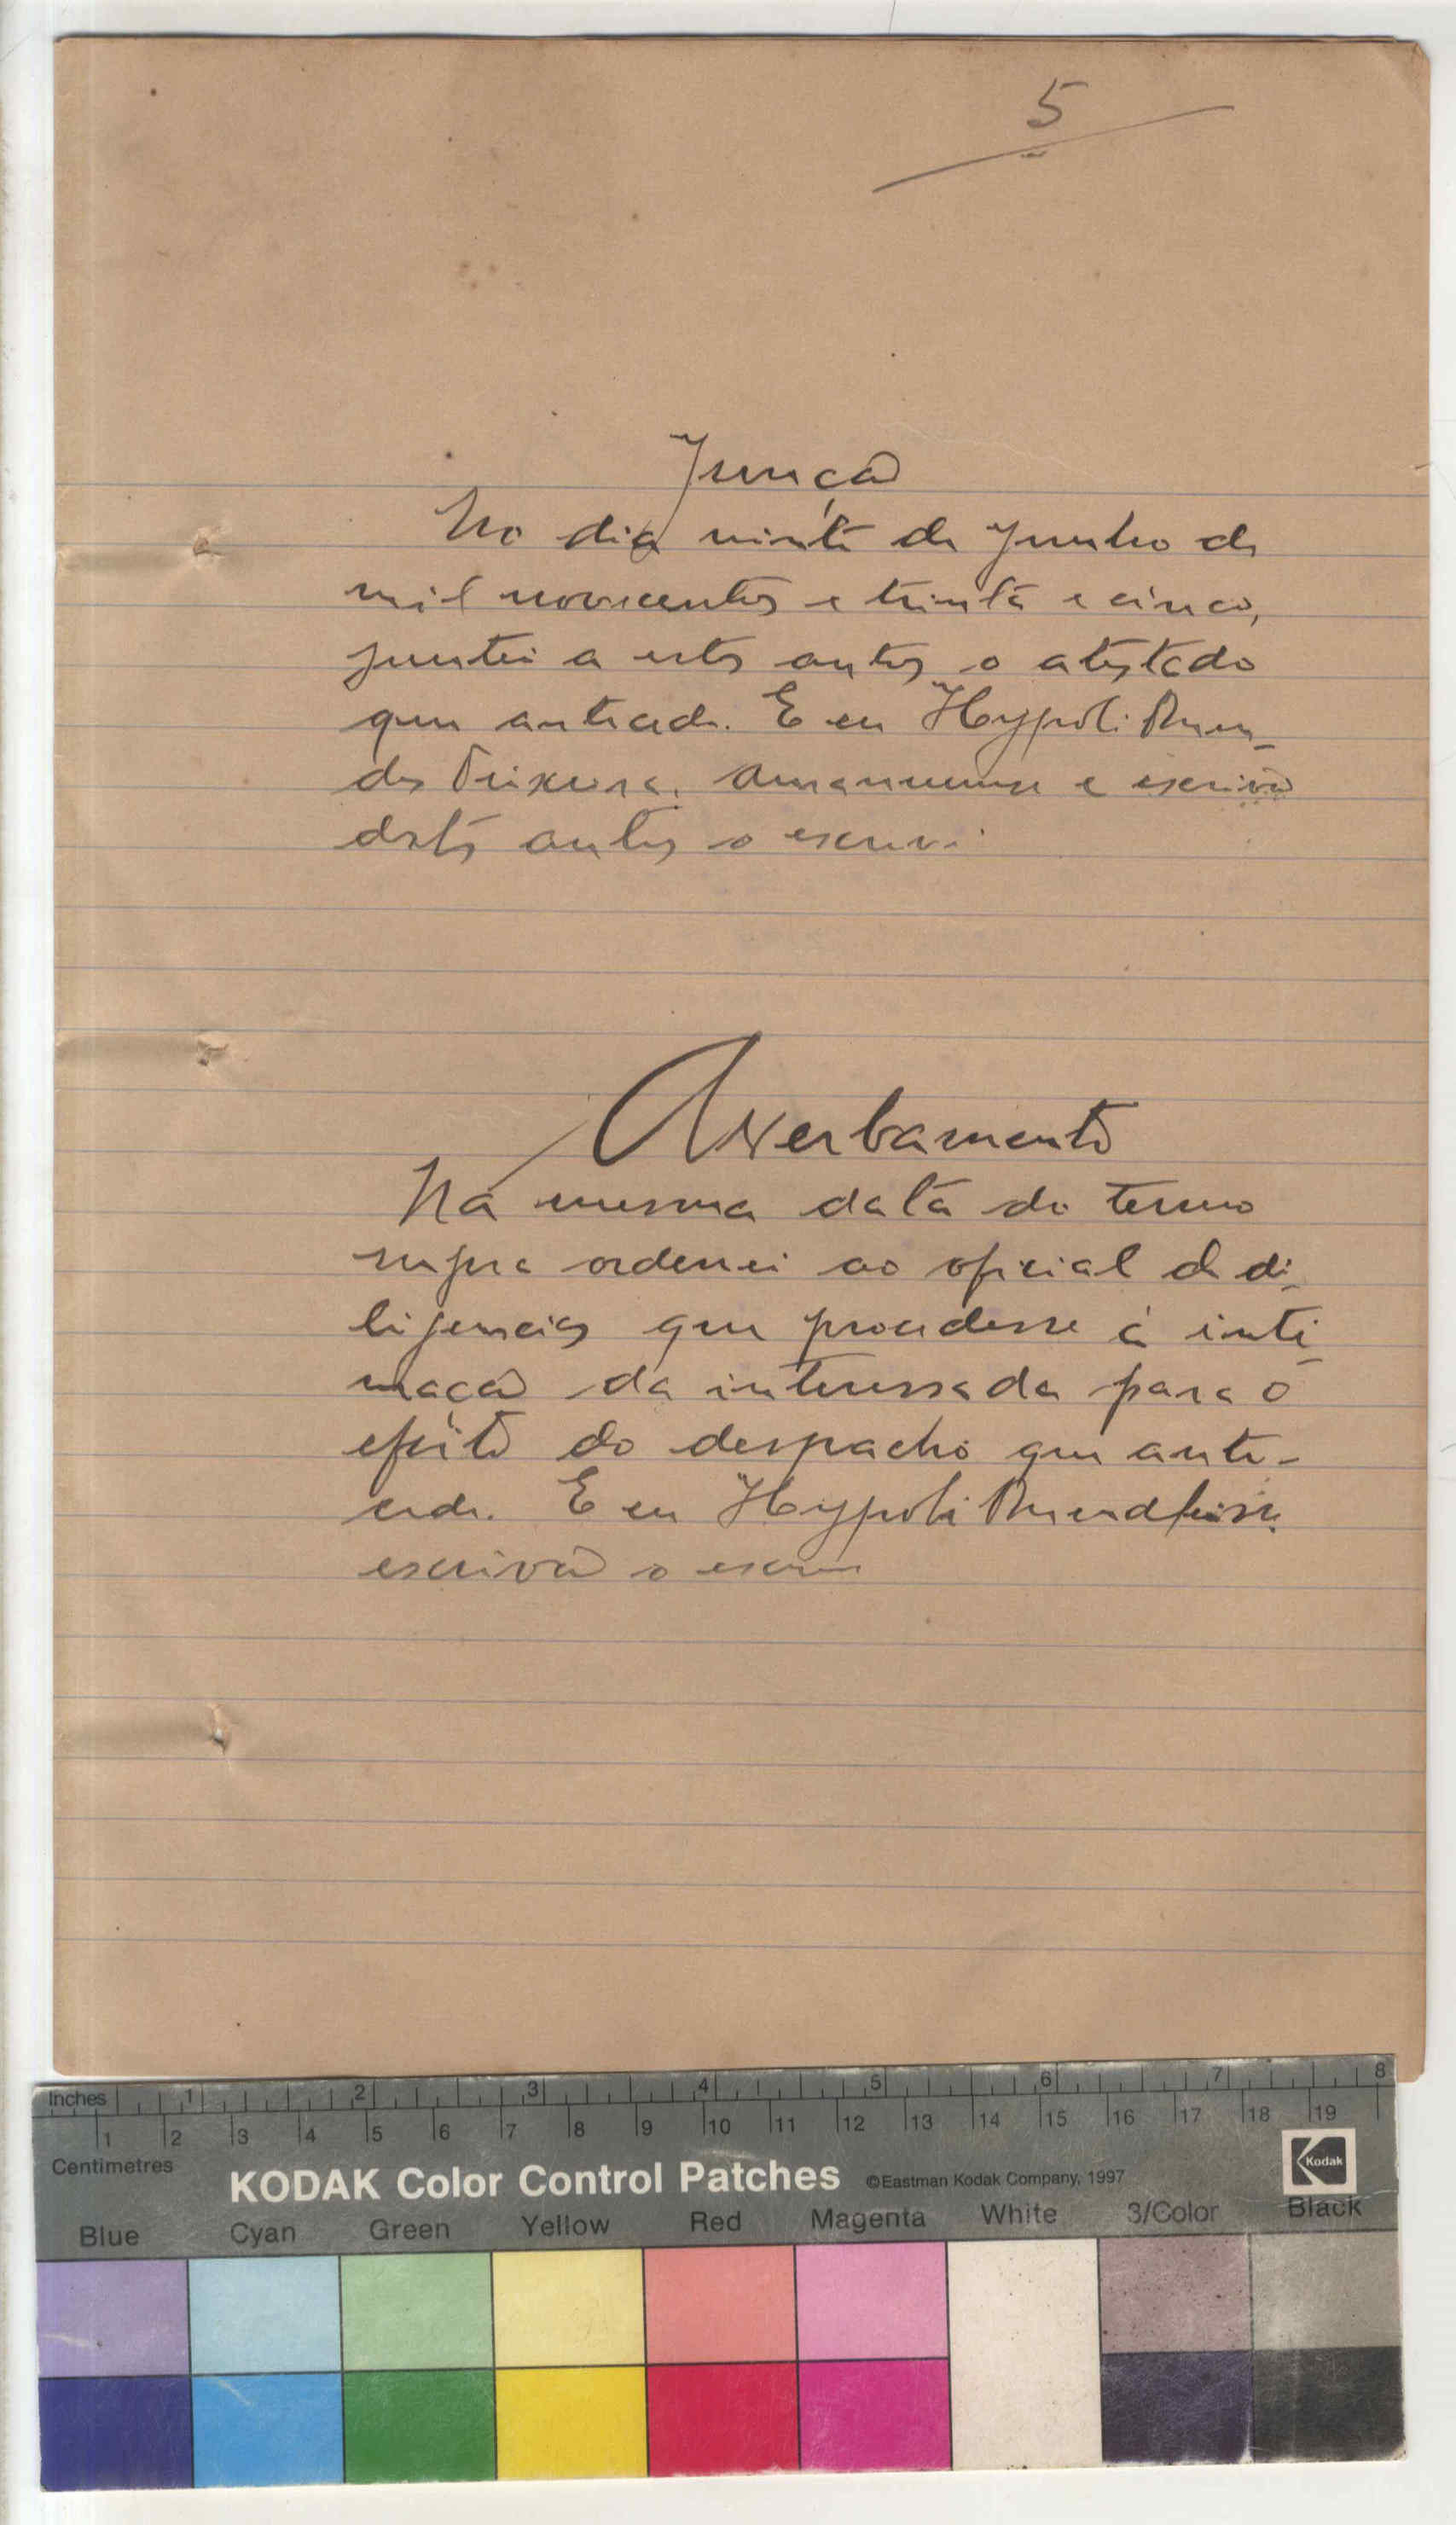 5
Junção
No dia vinte de Junho de
mil novecentos e trinta e cinco,
juntei a estes autos o atestado
que antecede. E eu Hypoli
des Teixeira, amanuense e escrivão
destes autos o escrevi
Averbamento
Na mesma data do termo
supra ordenei ao oficial de di-
ligencias que procedesse á inti-
mação da interessada para o
efeito do despacho que ante-
cede. E eu Hypoli
escrivão o escrevi
Inches 1 2 3 4 5 6 7 8
1 2 3 4 5 6 7 8 9 10 11 12 13 14 15 16 17 18 19
Centimetres
KODAK Color Control Patches ©Eastman Kodak Company, 1997 Kodak
Blue Cyan Green Yellow Red Magenta White 3/Color Black